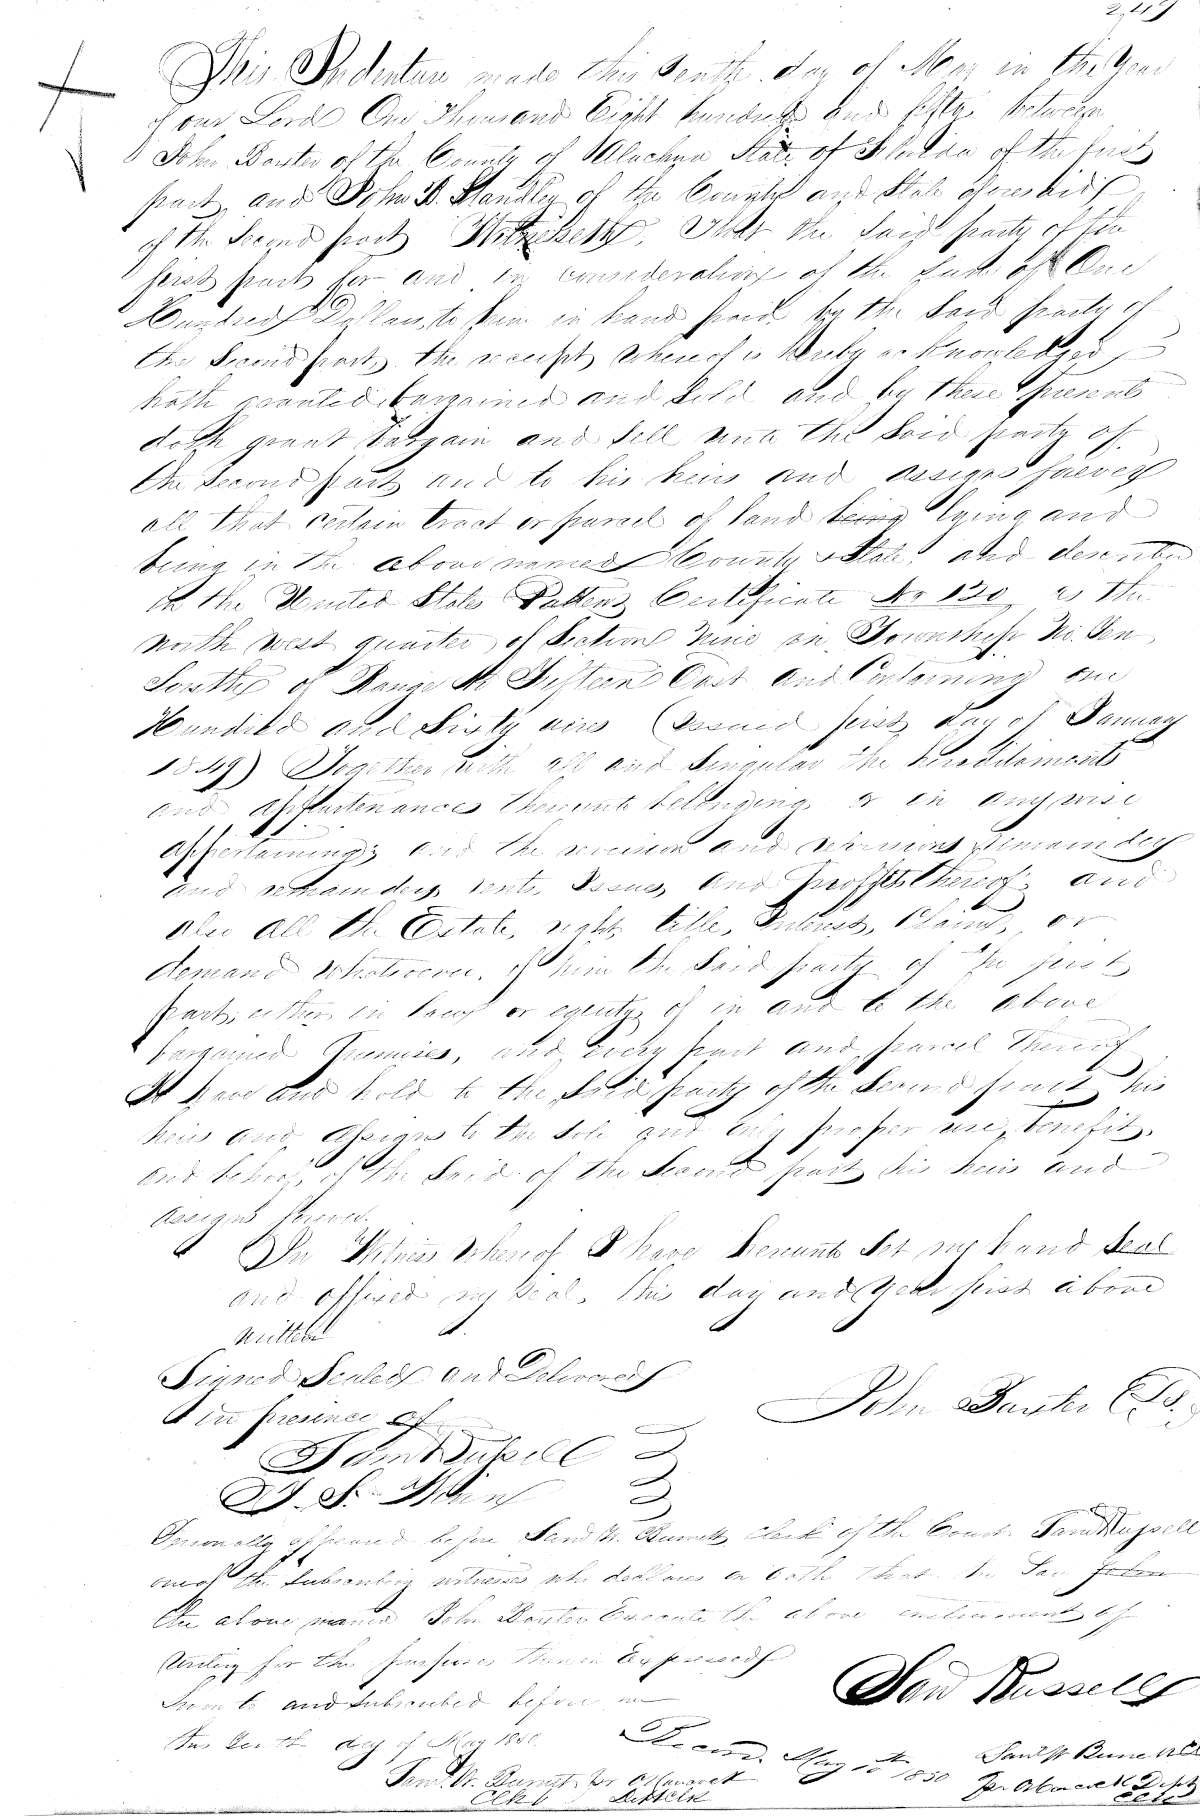 247
This Indenture made this tenth day of May in the Year
of our Lord One Thousand Eight hundred and fifty between
John Baxter of the County of Alachua State of Florida of the first
part and John B. Standley of the County and State aforesaid
of the Second part Witnesseth, That the Said party of the
first part for and in consideration of the Sum of One
Hundred Dollars, to him in hand paid by the Said party of
the Second part, the receipt whereof is hereby acknowledged
hath granted, bargained and Sold and by these presents
doth grant bargain and Sell unto the Said party of
the Second part and to his heirs and assigns forever
all that certain tract or parcel of land being lying and
being in the above named County & State, and described
in the United States Pattent Certificate No 120 as the
north west quarter of Section Nine in Township No. Ten
South of Range No Fifteen East and Containing one
Hundred and Sixty acres (Issued first day of January
1849) Together with all and Singular the hereditaments
and appurtenances thereunto belonging or in anywise
appertaining; and the revision and revisions remainder
and remainders, rents, Issues, and profits thereof; and
also all the Estate, right, title, Interest, Claim, or
demand whatsoever, of him the Said party of the first
part, either in law or equity, of in and to the above
bargained premises, and every part and parcel thereof
To have and hold to the Said party of the Second part his
heirs and assigns to the sole and only proper use, benefit,
and behoof, of the Said of the Second part his heirs and
assigns forever.
In Witness Whereof I have hereunto Set my hand seal
and affixed my seal, this day and year first above
written
Signed Sealed and Delivered
in presence of
John Baxter (L.S.)
Saml Russell
Personally appeared before Saml W. Burnett, clerk of the Court Saml Russell
one of the Subscribing witnesses who declares on oath that he Saw John
the above named John Baxter Execute the above instrument of
writing for the purposes therein Expressed
Saml Russell
Sworn to and subscribed before me
this tenth day of May 1850.
Record. May 10th 1850
Saml W. Burnett Clk
Saml. W. Burnett
Clk
Dept Clk